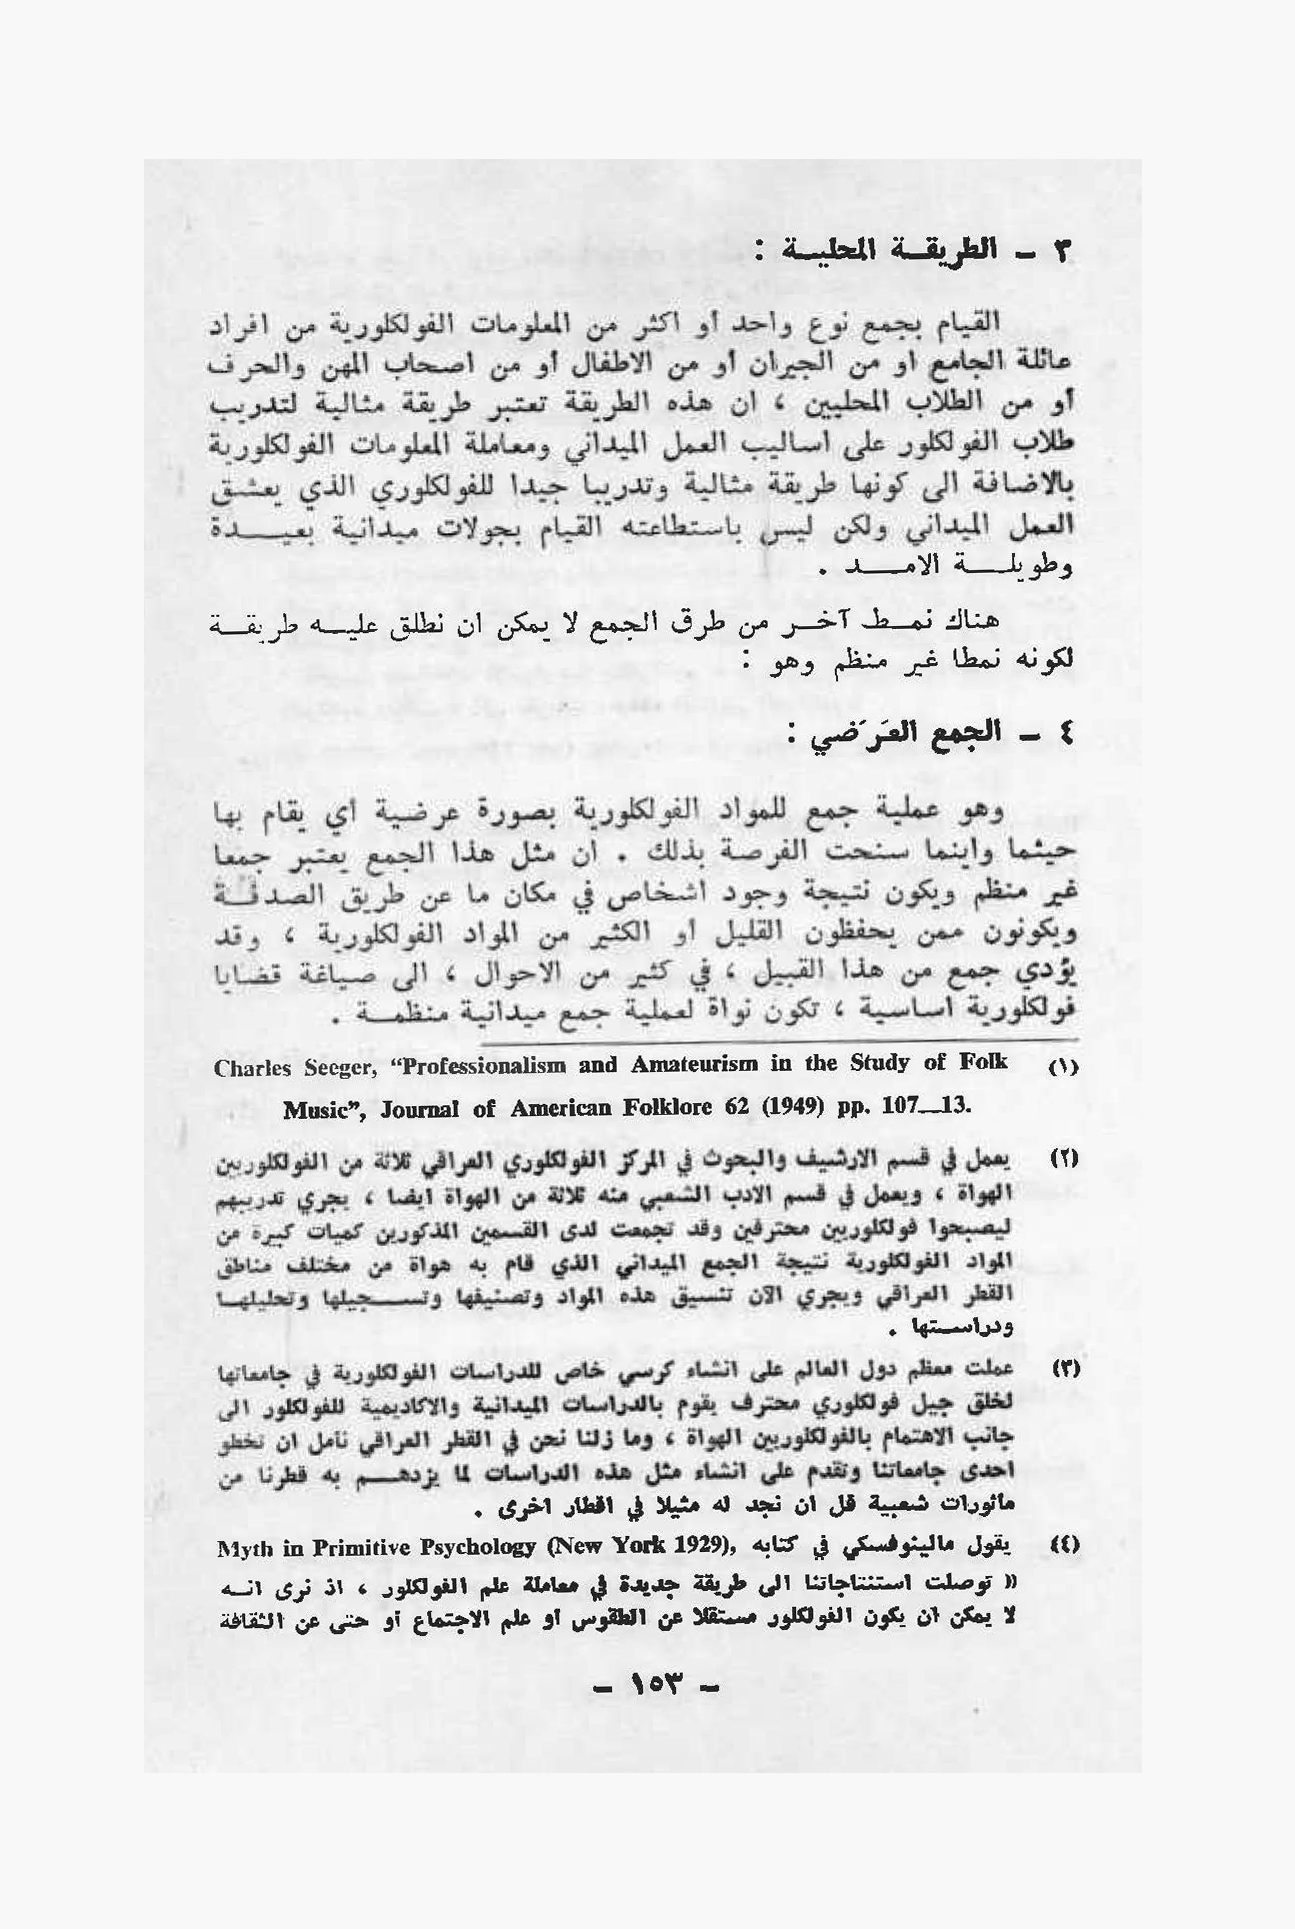 ٣ ــ الطريقــة المحليــة :
القيام بجمع نوع واحد أو اكثر من المعلومات الفولكلورية من افراد
عائلة الجامع او من الجيران أو من الاطفال أو من اصحاب المهن والحرف
أو من الطلاب المحليين ، ان هذه الطريقة تعتبر طريقة مثالية لتدريب
طلاب الفولكلور على اساليب العمل الميداني ومعاملة المعلومات الفولكلورية
بالاضافة الى كونها طريقة مثالية وتدريبا جيدا للفولكلوري الذي يعشق
العمل الميداني ولكن ليس باستطاعته القيام بجولات ميدانية بعيـــدة
وطويلــة الامــد .
هناك نمـط آخـر من طرق الجمع لا يمكن ان نطلق عليـه طريقـة
لكونه نمطا غير منظم وهو :
٤ ــ الجمع العَرَضي :
وهو عملية جمع للمواد الفولكلورية بصورة عرضية أي يقام بها
حيثما واينما سنحت الفرصة بذلك . ان مثل هذا الجمع يعتبر جمعا
غير منظم ويكون نتيجة وجود اشخاص في مكان ما عن طريق الصدفـة
ويكونون ممن يحفظون القليل أو الكثير من المواد الفولكلورية ، وقد
يؤدي جمع من هذا القبيل ، في كثير من الاحوال ، الى صياغة قضايا
فولكلورية اساسية ، تكون نواة لعملية جمع ميدانية منظمـة .
(١) Charles Seeger, “Professionalism and Amateurism in the Study of Folk
Music”, Journal of American Folklore 62 (1949) pp. 107—13.
(٢) يعمل في قسم الارشيف والبحوث في المركز الفولكلوري العراقي ثلاثة من الفولكلوريين
الهواة ، ويعمل في قسم الادب الشعبي منه ثلاثة من الهواة ايضا ، يجري تدريبهم
ليصبحوا فولكلوريين محترفين وقد تجمعت لدى القسمين المذكورين كميات كبيرة من
المواد الفولكلورية نتيجة الجمع الميداني الذي قام به هواة من مختلف مناطق
القطر العراقي ويجري الآن تنسيق هذه المواد وتصنيفها وتســجيلها وتحليلهـا
ودراسـتها .
(٣) عملت معظم دول العالم على انشاء كرسي خاص للدراسات الفولكلورية في جامعاتها
لخلق جيل فولكلوري محترف يقوم بالدراسات الميدانية والاكاديمية للفولكلور الى
جانب الاهتمام بالفولكلوريين الهواة ، وما زلنا نحن في القطر العراقي نأمل ان تخطو
احدى جامعاتنا وتقدم على انشاء مثل هذه الدراسات لما يزدهــم به قطرنا من
مأثورات شعبية قل ان نجد له مثيلا في اقطار اخرى .
(٤) يقول مالينوفسكي في كتابه Myth in Primitive Psychology (New York 1929),
« توصلت استنتاجاتنا الى طريقة جديدة في معاملة علم الفولكلور ، اذ نرى انـه
لا يمكن ان يكون الفولكلور مستقلا عن الطقوس أو علم الاجتماع أو حتى عن الثقافة
ــ ١٥٣ ــ